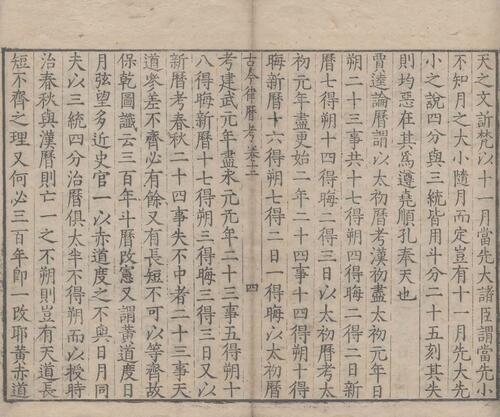 天之文訢梵以十一月當先大諸臣謂當先小
不知月之大小隨月而定豈有十一月先大先
小之說四分與三統皆用斗分二十五刻其失
則均惡在其爲遵堯順孔奉天也
賈逵論曆謂以太初曆考漢初盡太初元年日
朔二十三事共十七得朔四得晦二得二日新
曆七得朔十四得晦二得三日以太初曆考太
初元年盡更始二年二十四事十四得朔十得
晦新曆十六得朔七得二日一得晦以太初曆
古今律曆考 卷十二 四
考建武元年盡永元元年二十三事五得朔十
八得晦新曆十七得朔三得晦三得三日又以
新曆考春秋二十四事失不中者二十三事天
道參差不齊必有餘又有長短不可以等齊故
保乾圖讖云三百年斗曆改憲又謂黃道度日
月弦望多近史官一以赤道度之不與日月同
夫以三統四分治曆俱太半不得朔而以授時
治春秋與漢曆則亡一之不朔則豈有天道長
短不齊之理又何必三百年即一改耶黃赤道